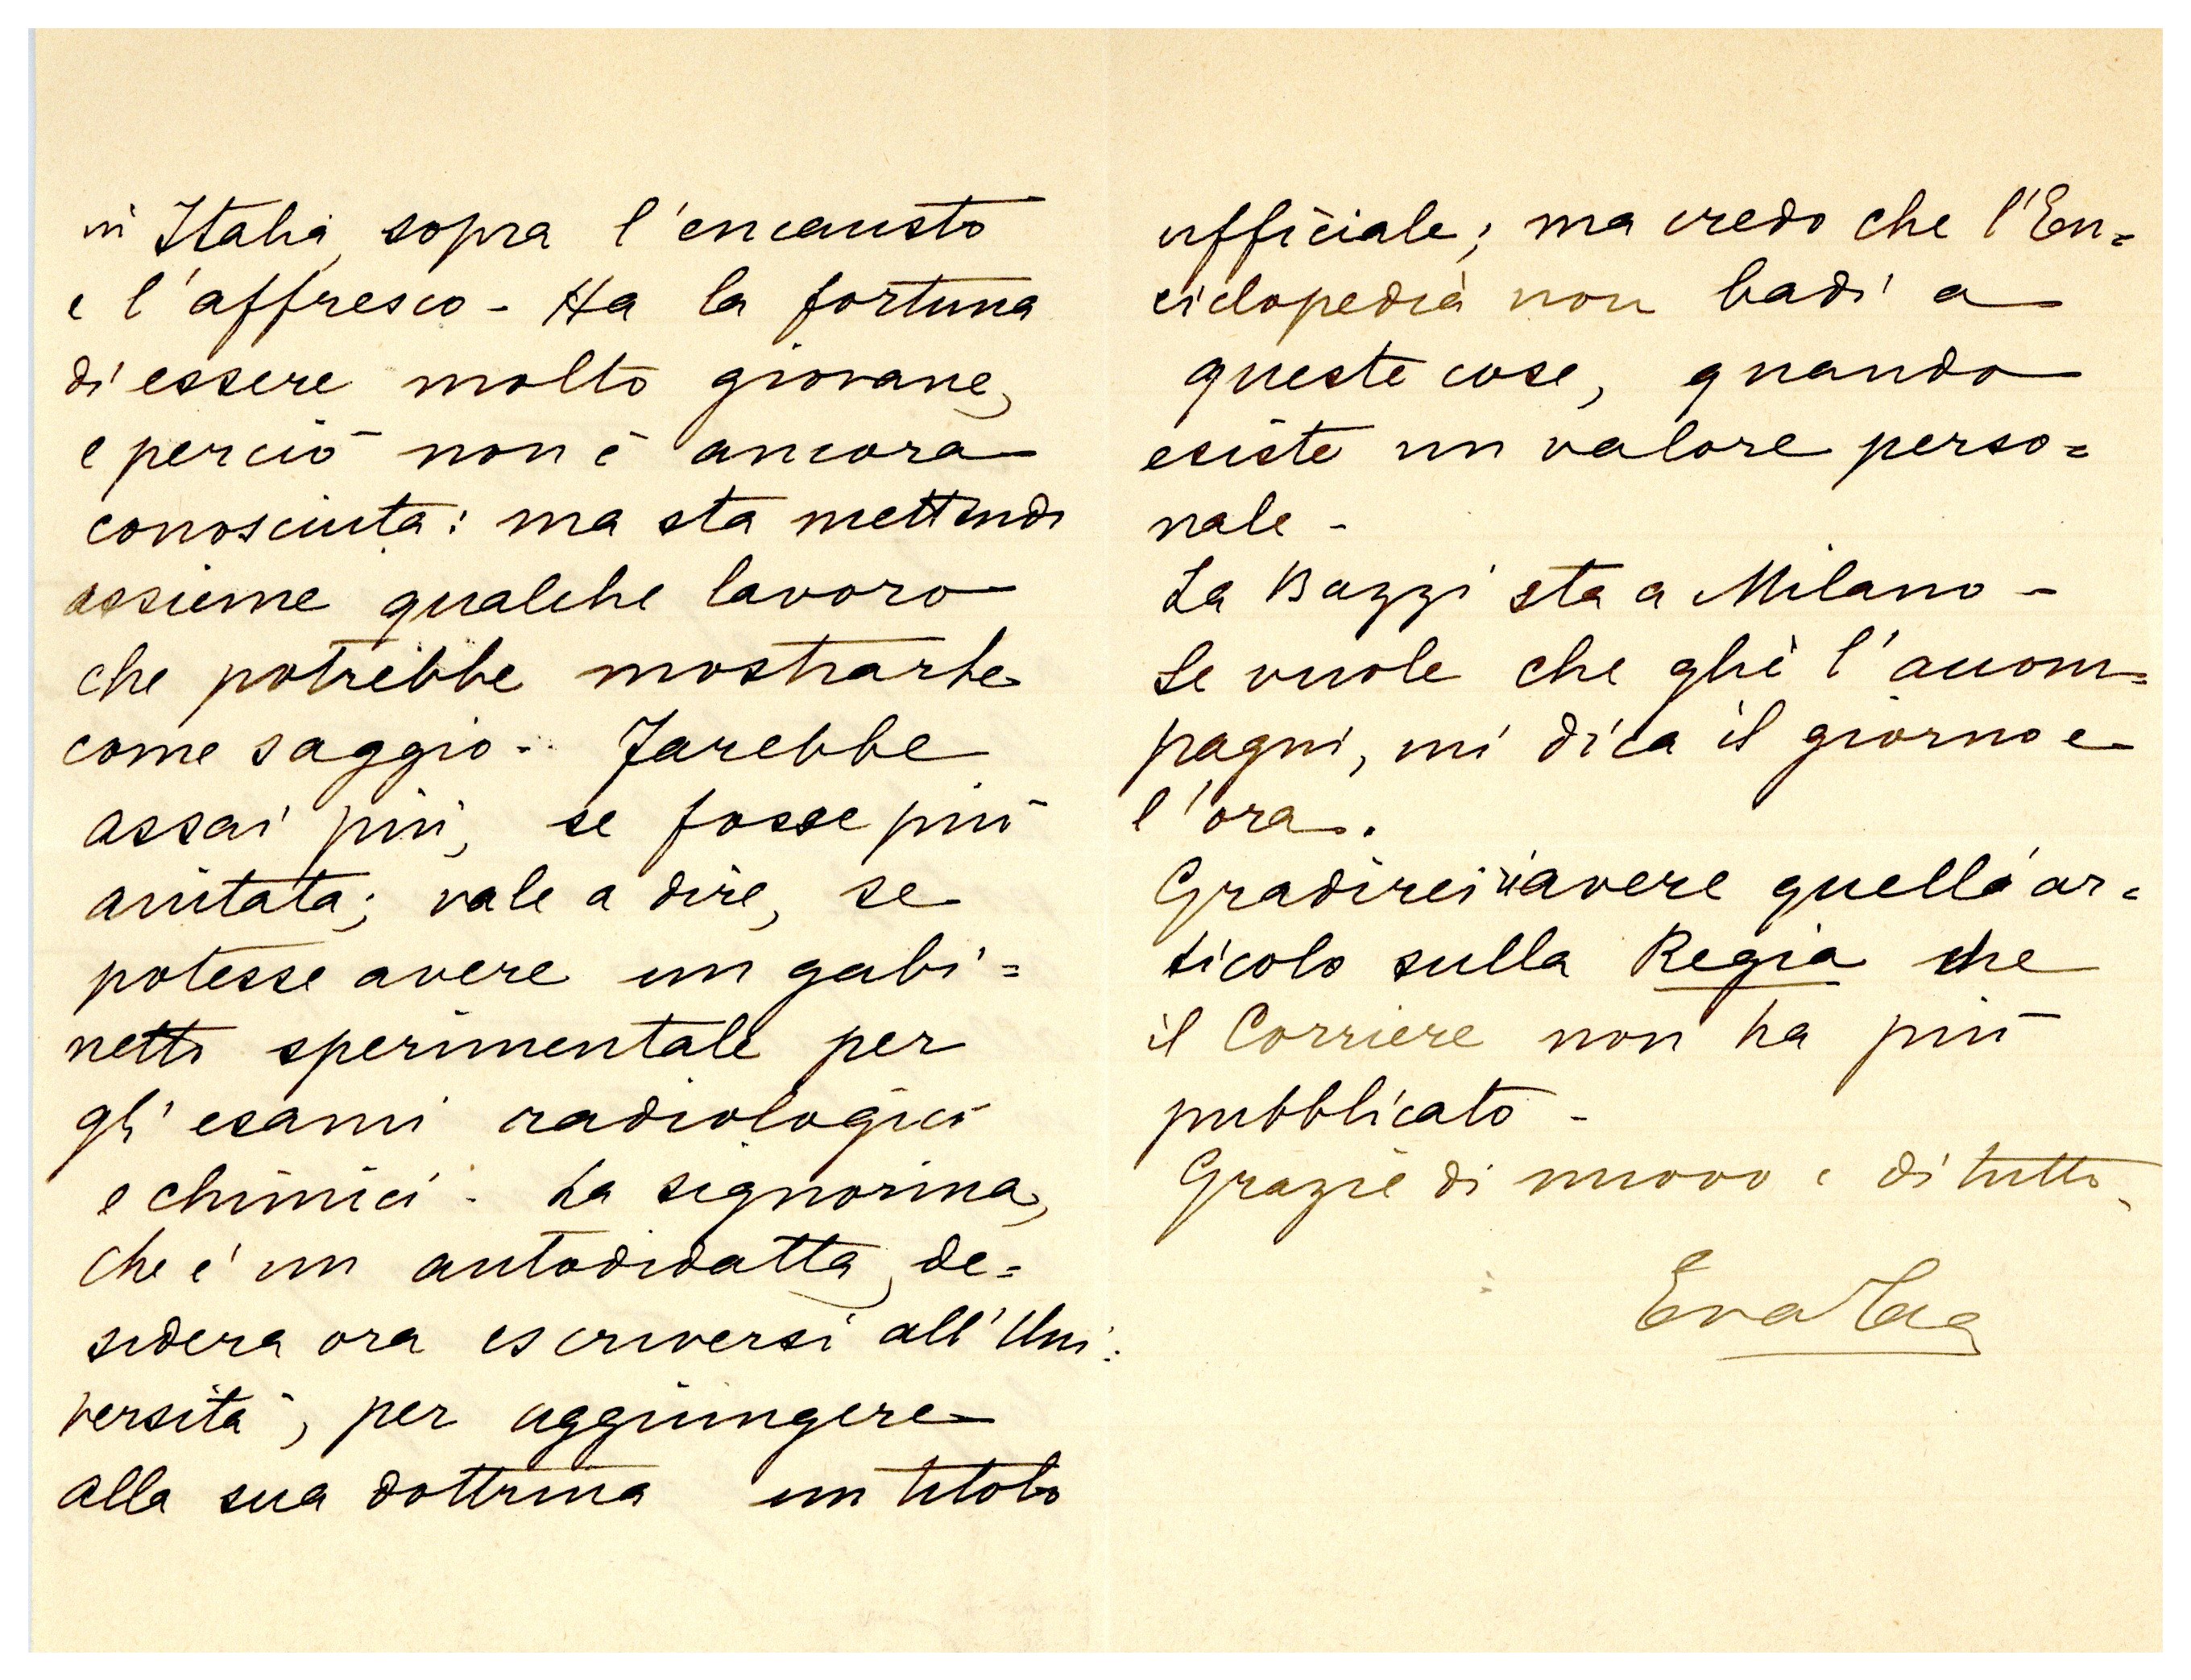 in Italia, sopra l'encausto
e l'affresco - Ha la fortuna
di essere molto giovane,
e perciò non è ancora
conosciuta: ma sta mettendo
assieme qualche lavoro
che potrebbe mostrarle
come saggio - Farebbe
assai più, se fosse più
aiutata; vale a dire, se
potesse avere un gabi=
netto sperimentale per
gli esami radiologici
e chimici - La signorina,
che è un autodidatta, de=
sidera ora iscriversi all'Uni=
versità, per aggiungere
alla sua dottrina un titolo
ufficiale; ma credo che l'En=
ciclopedia non badi a
queste cose, quando
esiste un valore perso=
nale -
La Bazzi sta a Milano -
Se vuole che gliè l'accom=
pagni, mi dica il giorno e
l'ora.
Gradirei riavere quello ar=
ticolo sulla Regia che
il Corriere non ha più
pubblicato -
Grazie di nuovo e di tutto.
Eva Tea